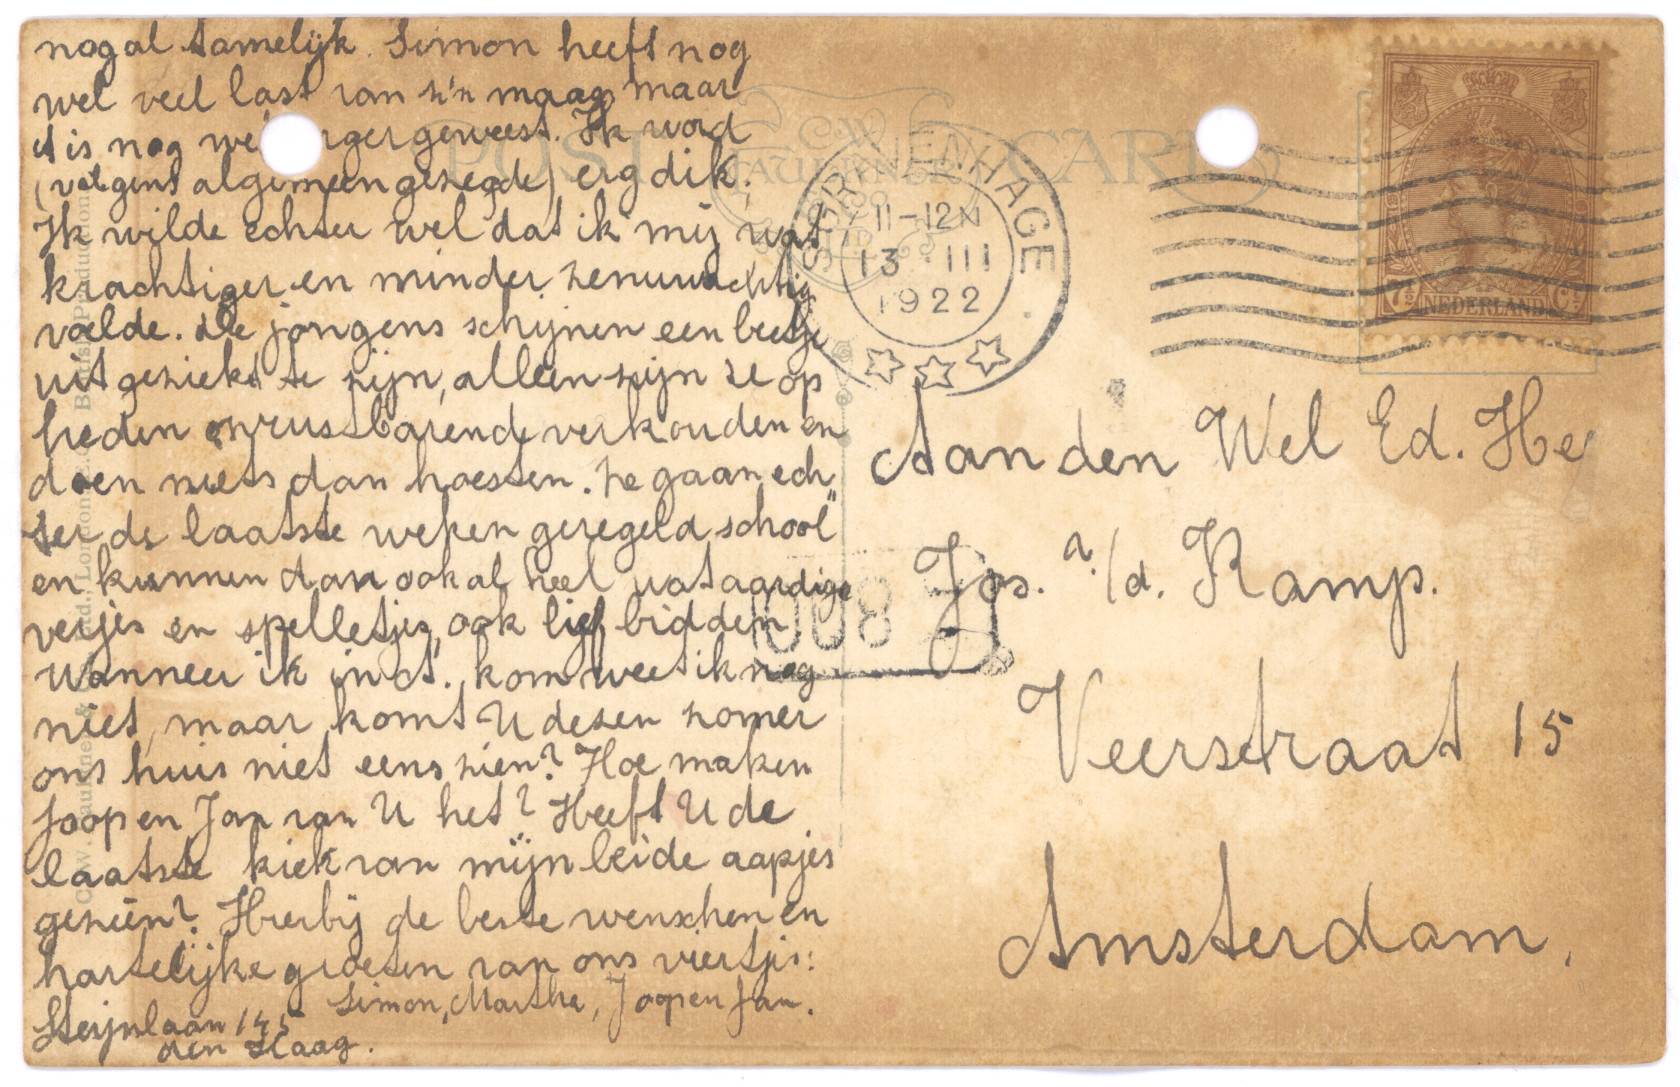 nogal tamelijk. Simon heeft nog
wel veel last van z'n maag maar
't is nog we rger geweest. Ik word
(volgens algemeen gezegde) erg dik.
Ik wilde echter wel dat ik mij wat
krachtiger en minder zenuwachtig
voelde. De jongens schijnen een beetje
uit geziekt te zijn, alleen zijn ze op
heden onrustbarende verkouden en
doen niets dan hoesten. Ze gaan ech
ter de laatste weken geregeld school"
en kunnen dan ook al heel wat aardige
versjes en spelletjes, ook lief bidden
Wanneer ik in A. kom weet ik nog
niet, maar komt U dezen zomer
ons huis niet eens zien? Hoe maken
Joop en Jan van U het? Heeft U de
laatste kiek van mijn beide aapjes
gezien? Hierbij de beste wenschen en
hartelijke groeten van ons viertjes:
Simon, Marthe, Joop en Jan.
Steijnlaan 145
den Haag.
POST CARD
'S GRAVENHAGE
11-12N
13 III
1922
7½ NEDERLAND C½
Aan den Wel Ed. Hee
Jos. v./d. Kamp.
Veerstraat 15
Amsterdam.